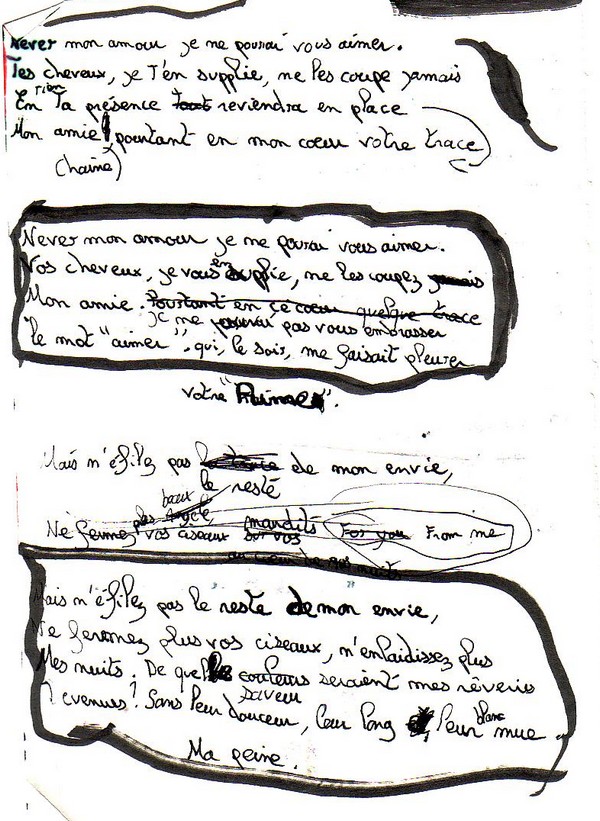 Never mon amour je ne pourai vous aimer.
Tes cheveux, je t'en supplie, ne les coupe jamais
En Ta présence tout reviendra en place
Mon amie pourtant en mon coeur votre trace
(chaine)
Never mon amour je ne pourai vous aimer.
Vos cheveux, je vous en supplie, ne les coupez jamais
Mon amie. Pourtant en ce coeur quelque trace
je ne pourrai pas vous embrasser
le mot "aimer", qui, le soir, me faisait pleurer
votre "Aimer".
Mais n'éfilez pas de mon envie,
le reste
beaux
plus
Ne fermez vos ciseaux sur vos maudits For you From me
au coeur de mes nuits
Mais n'éfilez pas le reste de mon envie,
Ne fermez plus vos ciseaux, n'enlaidissez plus
Mes nuits. De quelle couleurs seraient mes rêveries
saveur
cvenues? Sans leur douceur, leur long leur blanc mue
Ma peine.